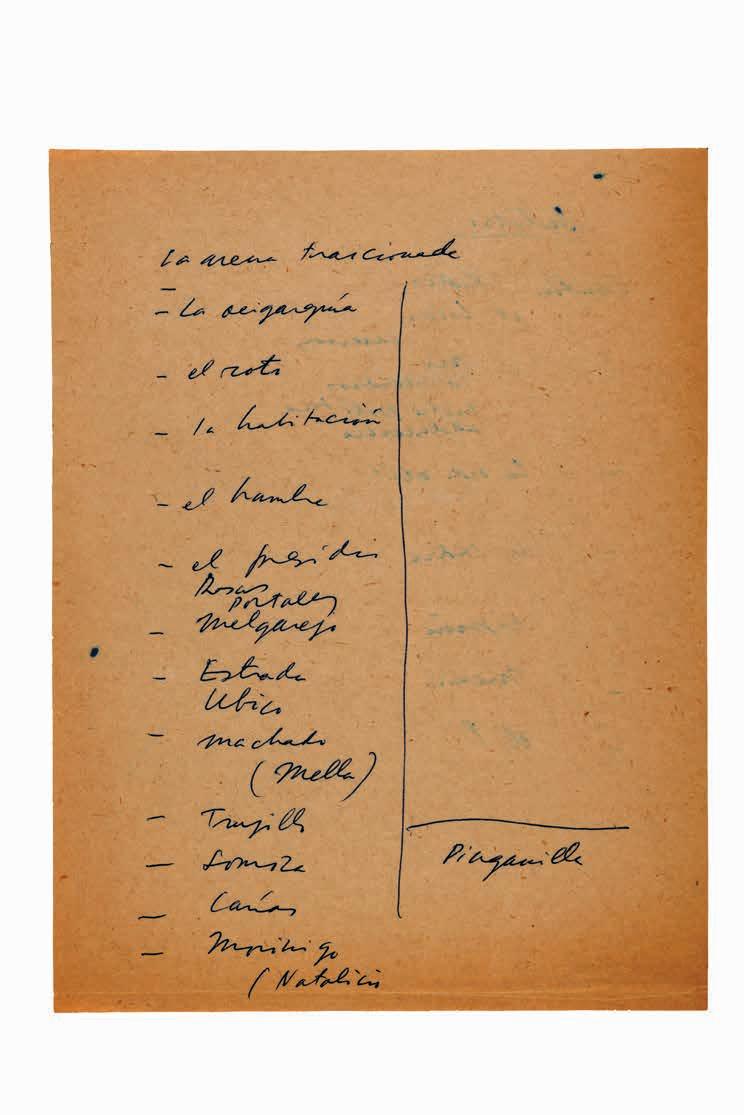 La arena traicionada
- La oligarquía
- el roto
- la habitación
- el hambre
- el presidio
Rosas
Portales
- Melgarejo
- Estrada
Ubico
- machado
(Mella)
- Trujillo
- Somoza
- Carías
- Moriñigo
(Natalicio
Piraganilla